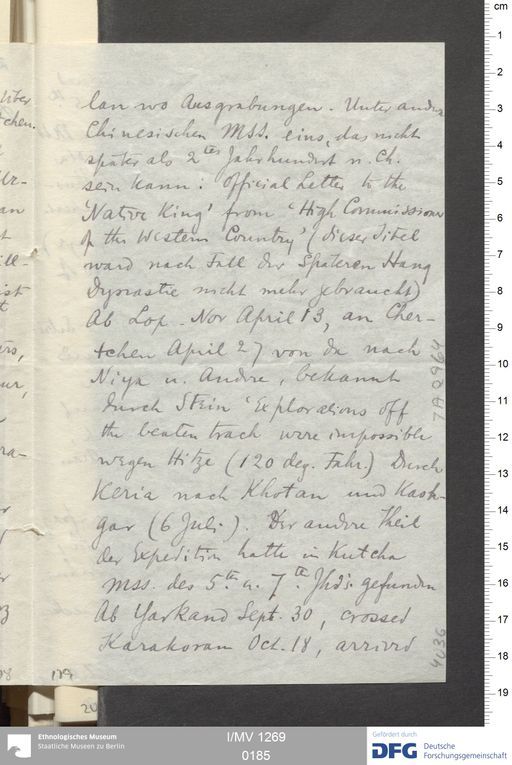 lan wo Ausgrabungen. Unter andern
Chinesischen Mss. eins, das nicht
später als 2tes Jahrhundert n. Ch.
sein kann: Official Letter to the
'Native King' from 'High Commissioner
of the Western Country' (dieser Titel
ward nach Fall der Späteren Hang
Dynastie nicht mehr gebraucht)
Ab Lop-Nor April 13, an Cher-
tchen April 27 von da nach
Niya u. Andre, bekannt
durch Stein 'Explorations off
the beaten track were impossible
wegen Hitze (120 deg. Fahr.) Durch
Keria nach Khotan und Kash-
gar (6 Juli). Der andere Theil
der Expedition hatte in Kutcha
Mss. des 5th u. 7th. Jhds. gefunden
Ab Yarkand Sept. 30, crossed
Karakoram Oct. 18, arrived
über
chen.
an
ill-
ist
ra-
179
cm
1
2
3
4
5
6
7
8
9
10
11
12
13
14
15
16
17
18
19
Ethnologisches Museum
Staatliche Museen zu Berlin
I/MV 1269
0185
Gefördert durch
DFG
Deutsche
Forschungsgemeinschaft